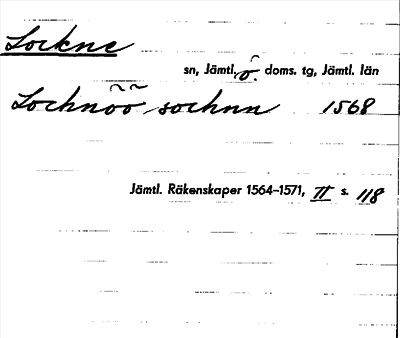 Lockne
sn, Jämtl. ö. doms. tg, Jämtl. län
Lochnõõ sochnn 1568
Jämtl. Räkenskaper 1564–1571, II s. 118